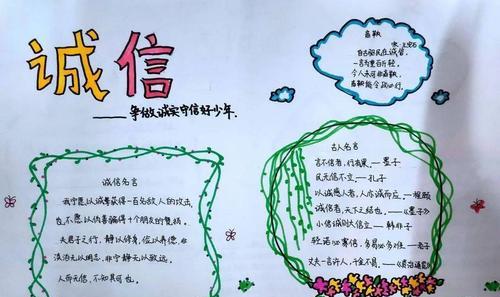 诚信
——争做诚实守信好少年.
商鞅
宋·王安石
自古驱民在诚信,
一言为重百斤轻.
今人未可非商鞅,
商鞅能令政必行.
诚信名言
我宁愿以诚挚获得一百名敌人的攻击,
也不愿以伪善骗得十个朋友的赞扬.
夫君子之行,静以修身,俭以养德,非
淡泊无以明志,非宁静无以致远.
人而无信,不知其可也.
古人名言
言不信者,行不果.——墨子
民无信不立.——孔子
以诚感人者,人亦诚而应.——程颐
诚信者,天下之结也.——《墨子》
小信诚则大信立.——韩非子
轻诺必寡信,多易必多难.——老子
丈夫一言许人,千金不易.——《资治通鉴》